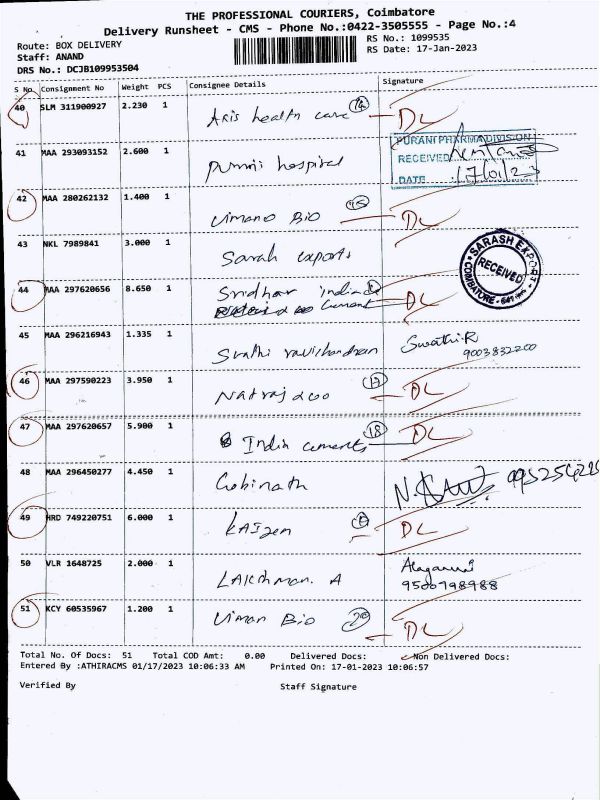 THE PROFESSIONAL COURIERS, Coimbatore
Delivery Runsheet - CMS - Phone No.:0422-3505555 - Page No.:4
Route: BOX DELIVERY
RS No.: 1099535
Staff: ANAND
RS Date: 17-Jan-2023
DRS No.: DCJB109953504
S No. Consignment No Weight PCS Consignee Details Signature
40 SLM 311900927 2.230 1 Aris health care 14 DL
41 MAA 293093152 2.600 1 hospital
PURANI PHARMA DIVISION
RECEIVED
DATE 17/01/23
42 MAA 280262132 1.400 1 Vimano Bio 15 DL
43 NKL 7989841 3.000 1 Sarah exports
SARASH EXPORT
RECEIVED
COIMBATORE
44 MAA 297620656 8.650 1 Sridhar india DL
cement
45 MAA 296216943 1.335 1 Sruthi ravichandran Swathi.R
9003832200
46 MAA 297590223 3.950 1 Natraj 17 DL
47 MAA 297620657 5.900 1 India cements 18 DL
48 MAA 296450277 4.450 1 Gobinath
49 HRD 749220751 6.000 1 KAIzen DL
50 VLR 1648725 2.000 1 LAKshman. A
9500798988
51 KCY 60535967 1.200 1 Viman Bio 20 DL
Total No. Of Docs: 51 Total COD Amt: 0.00 Delivered Docs: Non Delivered Docs:
Entered By :ATHIRACMS 01/17/2023 10:06:33 AM Printed On: 17-01-2023 10:06:57
Verified By Staff Signature